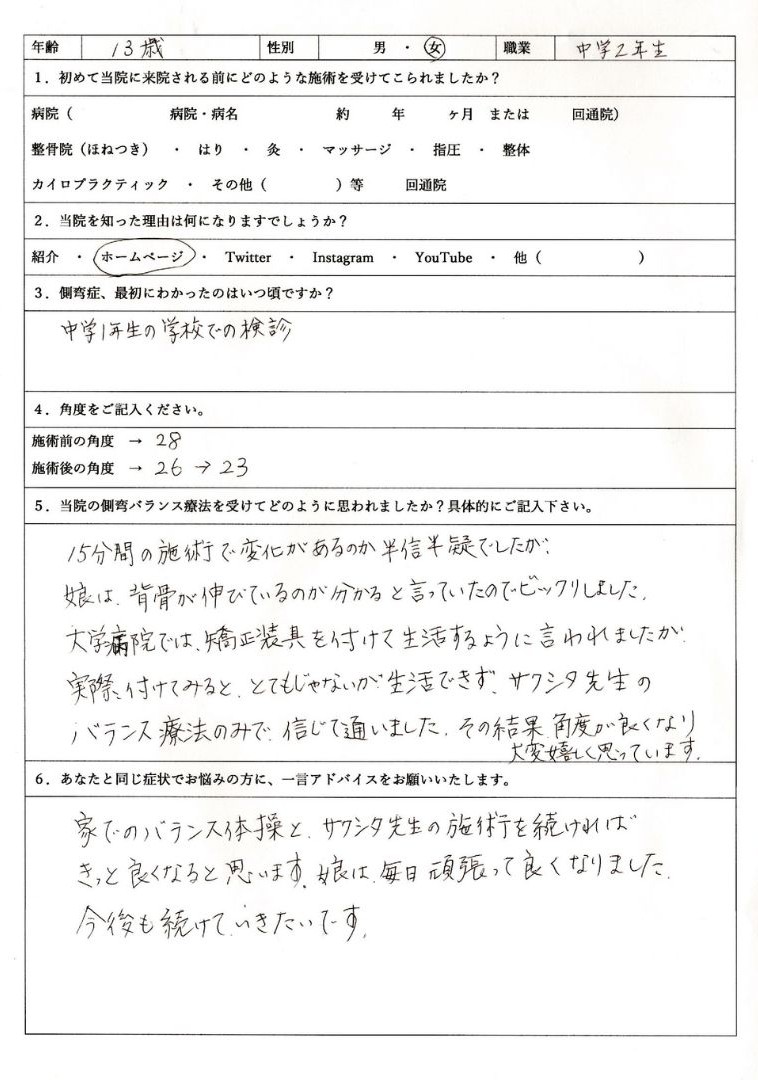 年齢 13歳 性別 男 ・ 女 職業 中学2年生
1．初めて当院に来院される前にどのような施術を受けてこられましたか？
病院（ 病院・病名 約 年 ヶ月 または 回通院）
整骨院（ほねつき） ・ はり ・ 灸 ・ マッサージ ・ 指圧 ・ 整体
カイロプラクティック ・ その他（ ）等 回通院
2．当院を知った理由は何になりますでしょうか？
紹介 ・ ホームページ ・ Twitter ・ Instagram ・ YouTube ・ 他（ ）
3．側弯症、最初にわかったのはいつ頃ですか？
中学1年生の学校での検診
4．角度をご記入ください。
施術前の角度 → 28
施術後の角度 → 26 → 23
5．当院の側弯バランス療法を受けてどのように思われましたか？具体的にご記入下さい。
15分間の施術で変化があるのか半信半疑でしたが、
娘は、背骨が伸びているのが分かると言っていたのでビックリしました。
大学病院では、矯正装具を付けて生活するように言われましたが
実際、付けてみると、とてもじゃないが生活できず、サクシタ先生の
バランス療法のみで、信じて通いました。その結果、角度が良くなり
大変嬉しく思っています。
6．あなたと同じ症状でお悩みの方に、一言アドバイスをお願いいたします。
家でのバランス体操と、サクシタ先生の施術を続ければ
きっと良くなると思います。娘は、毎日頑張って良くなりました。
今後も続けていきたいです。